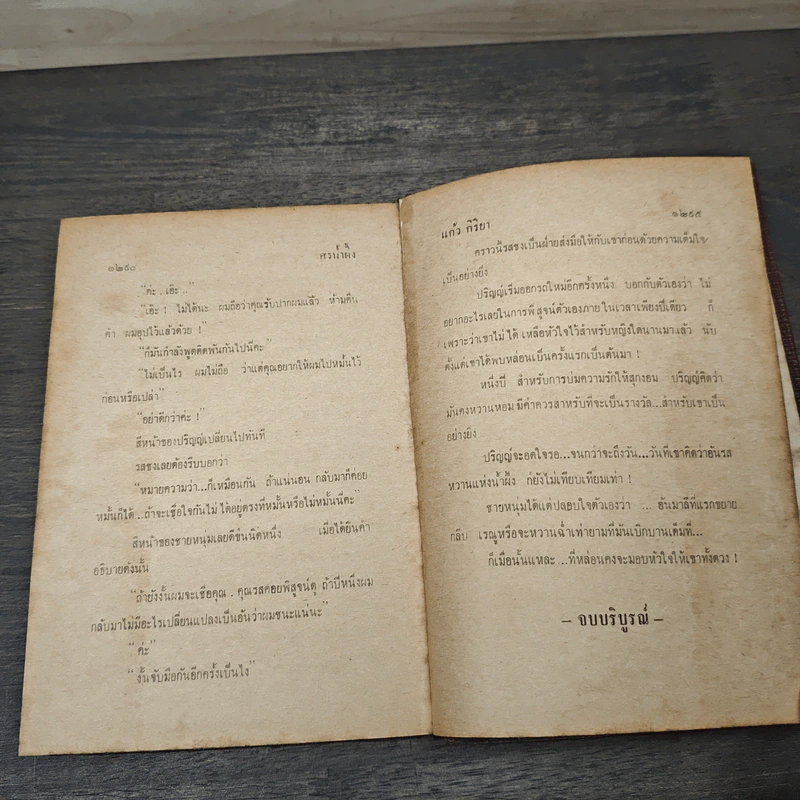 ๑๒๙๔ ศรน้ำผึ้ง
“ค่ะ..เอ๊ะ..”
“เอ๊ะ ! ไม่ได้นะ ผมถือว่าคุณรับปากผมแล้ว ห้ามคืน
คำ ผมอุปไว้แล้วด้วย !”
“ก็มันกำลังพูดติดพันกันไปนี่คะ”
“ไม่เป็นไร ผมไม่ถือ ว่าแต่คุณอยากให้ผมไปหมั้นไว้
ก่อนหรือเปล่า”
“อย่าดีกว่าค่ะ !”
สีหน้าของปริญญ์เปลี่ยนไปทันที
รสชงเลยต้องรีบบอกว่า
“หมายความว่า...ก็เหมือนกัน ถ้าแน่นอน กลับมาก็ค่อย
หมั้นก็ได้ ..ถ้าจะเชื่อใจกันไม่ ได้อยู่ตรงที่หมั้นหรือไม่หมั้นนี่คะ”
สีหน้าของชายหนุ่มเลยดีขึ้นนิดหนึ่ง เมื่อได้ยินคำ
อธิบายดังนั้น
“ถ้ายังงั้นผมจะเชื่อคุณ . คุณรสคอยพิสูจน์ดู ถ้าปีหนึ่งผม
กลับมาไม่มีอะไรเปลี่ยนแปลงเป็นอันว่าผมชนะแน่นะ”
“ค่ะ”
“งั้นจับมือกันอีกครั้งเป็นไง”
แก้ว กิริยา ๑๒๙๕
คราวนี้รสชงเป็นฝ่ายส่งมือให้กับเขาก่อนด้วยความเต็มใจ
เป็นอย่างยิ่ง
ปริญญ์เริ่มออกรถใหม่อีกครั้งหนึ่ง บอกกับตัวเองว่า ไม่
อยากอะไรเลยในการพิสูจน์ตัวเองภายในเวลาเพียงปีเดียว ก็
เพราะว่าเขาไม่ ได้ เหลือหัวใจไว้สำหรับหญิงใดนานมาแล้ว นับ
ตั้งแต่เขาได้พบหล่อนเป็นครั้งแรกเป็นต้นมา !
หนึ่งปี สำหรับการบ่มความรักให้สุกงอม ปริญญ์คิดว่า
มันคงหวานหอม มีค่าควรสำหรับที่จะเป็นรางวัล...สำหรับเขาเป็น
อย่างยิ่ง
ปริญญ์จะอดใจรอ...จนกว่าจะถึงวัน...วันที่เขาคิดว่าอันรส
หวานแห่งน้ำผึ้ง ก็ยังไม่เทียบเทียมเท่า !
ชายหนุ่มได้แต่ปลอบใจตัวเองว่า ... อันมาลีที่แรกขยาย
กลีบ เรณูหรือจะหวานฉ่ำเท่ายามที่มันเบิกบานเต็มที่...
ก็เมื่อนั้นแหละ...ที่หล่อนคงจะมอบหัวใจให้เขาทั้งดวง !
– จบบริบูรณ์ –